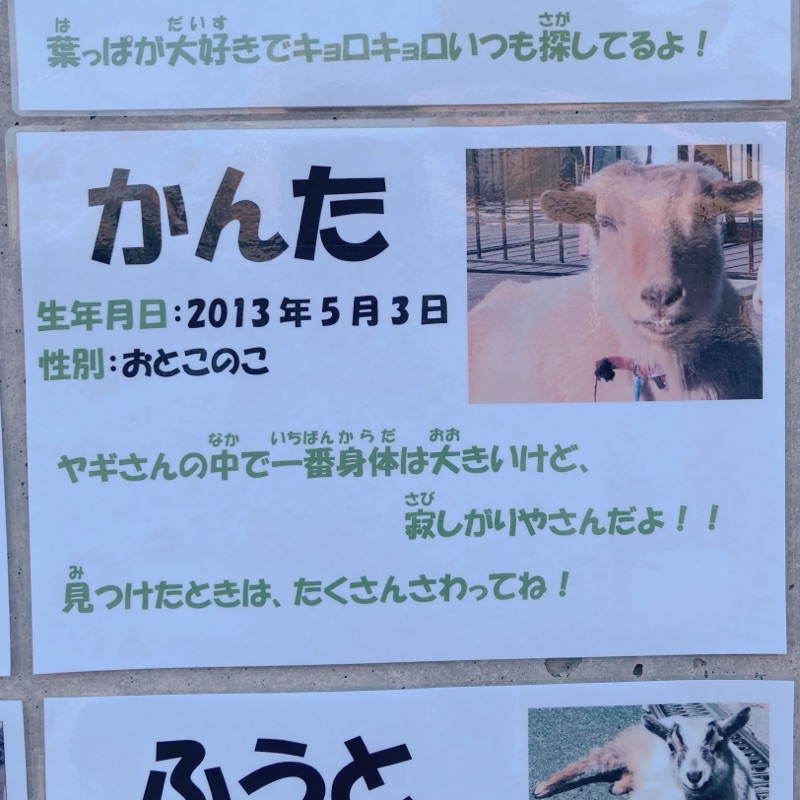 は だいす さが
葉っぱが大好きでキョロキョロいつも探してるよ！
かんた
生年月日：2013年5月3日
性別：おとこのこ
なか いちばんからだ おお
ヤギさんの中で一番身体は大きいけど、
さび
寂しがりやさんだよ！！
み
見つけたときは、たくさんさわってね！
ふうと